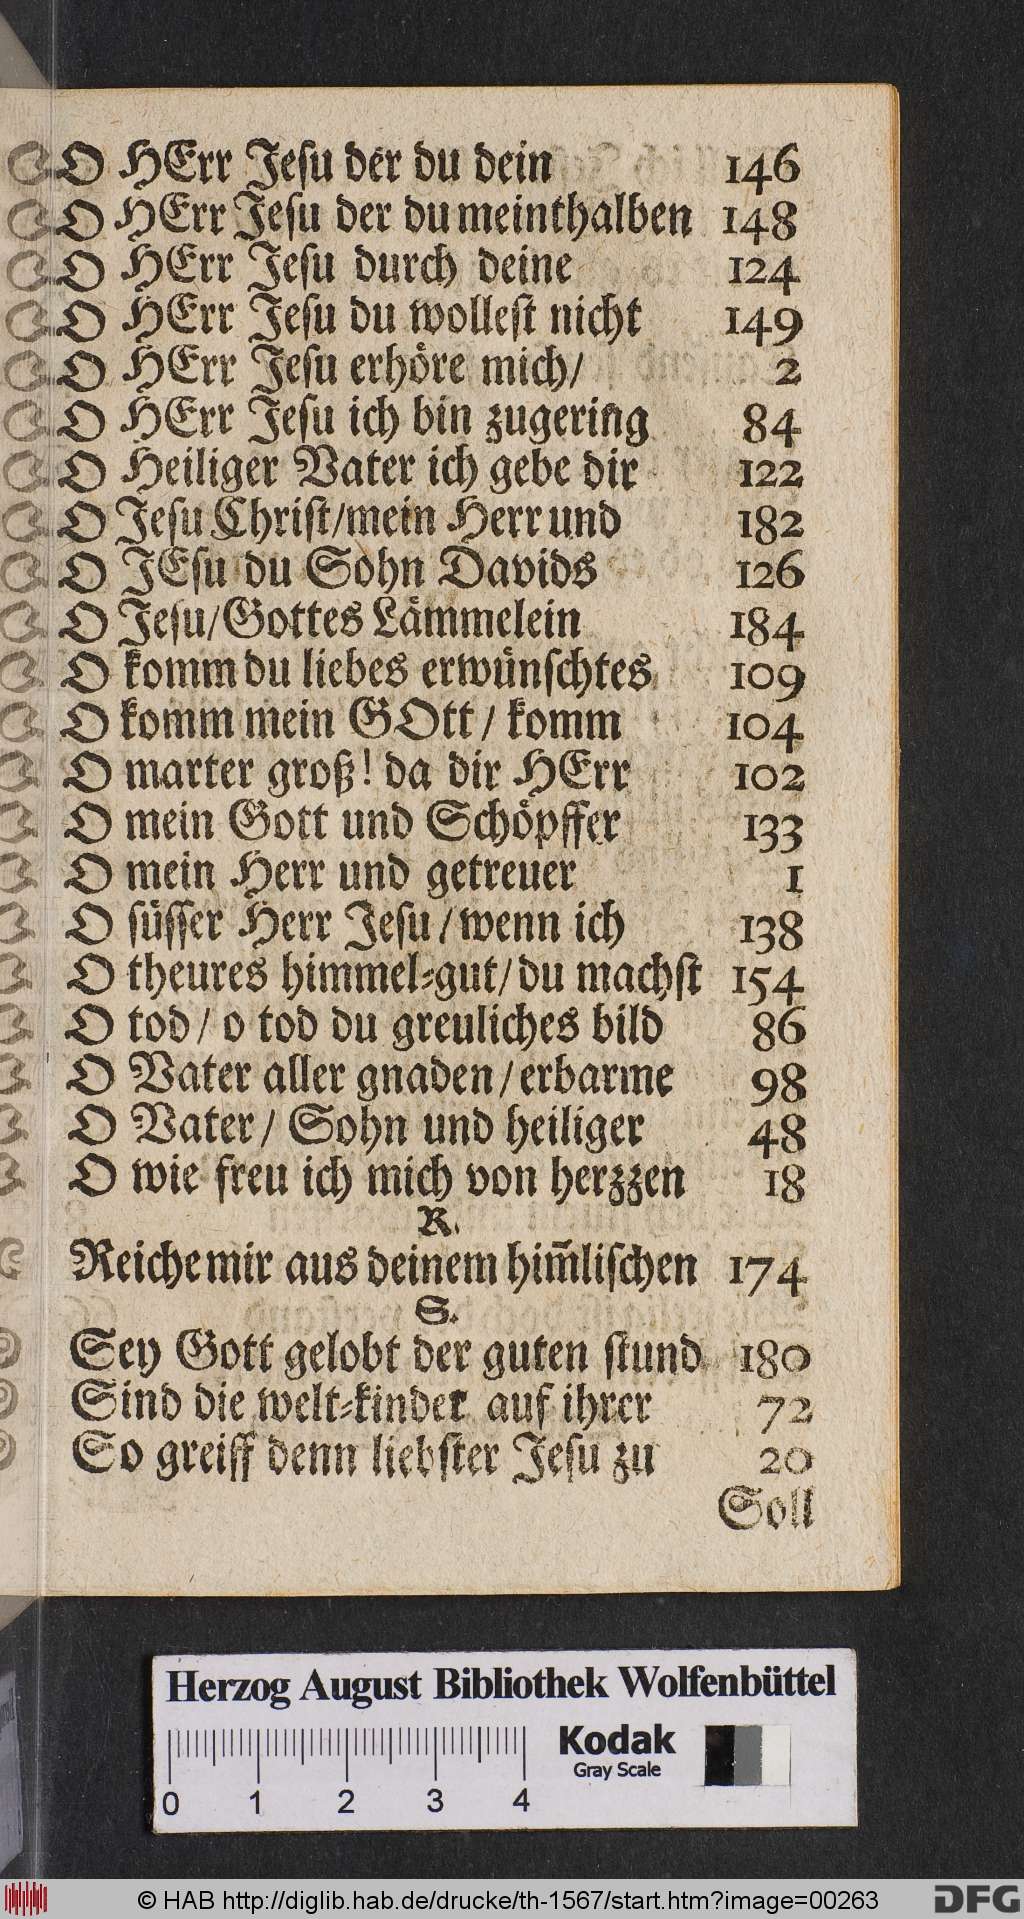 O HErr Jesu der du dein 146
O HErr Jesu der du meinthalben 148
O HErr Jesu durch deine 124
O HErr Jesu du wollest nicht 149
O HErr Jesu erhöre mich/ 2
O HErr Jesu ich bin zugering 84
O Heiliger Vater ich gebe dir 122
O Jesu Christ/mein Herr und 182
O JEsu du Sohn Davids 126
O Jesu/Gottes Lämmelein 184
O komm du liebes erwünschtes 109
O komm mein GOtt / komm 104
O marter groß! da dir HErr 102
O mein Gott und Schöpffer 133
O mein Herr und getreuer 1
O süsser Herr Jesu / wenn ich 138
O theures himmel-gut/ du machst 154
O tod / o tod du greuliches bild 86
O Vater aller gnaden / erbarme 98
O Vater / Sohn und heiliger 48
O wie freu ich mich von herzzen 18
R.
Reiche mir aus deinem him̃lischen 174
S.
Sey Gott gelobt der guten stund 180
Sind die welt-kinder auf ihrer 72
So greiff denn liebster Jesu zu 20
Soll
Herzog August Bibliothek Wolfenbüttel
Kodak
Gray Scale
0 1 2 3 4
© HAB http://diglib.hab.de/drucke/th-1567/start.htm?image=00263
DFG